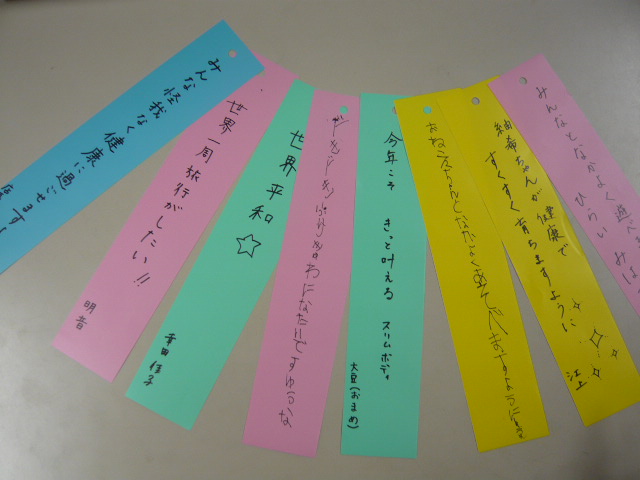 みんな怪我なく
健康に過ごせます
世界一周旅行がしたい!!
明音
世界平和☆
になたいですゆうな
今年こそ きっと叶える スリムボディ
大豆(おまめ)
おねえちゃんとなかよくあそべますように
紬希ちゃんが健康で
すくすく育ちますように
江上
みんなとなかよく遊べ
ひらい みは